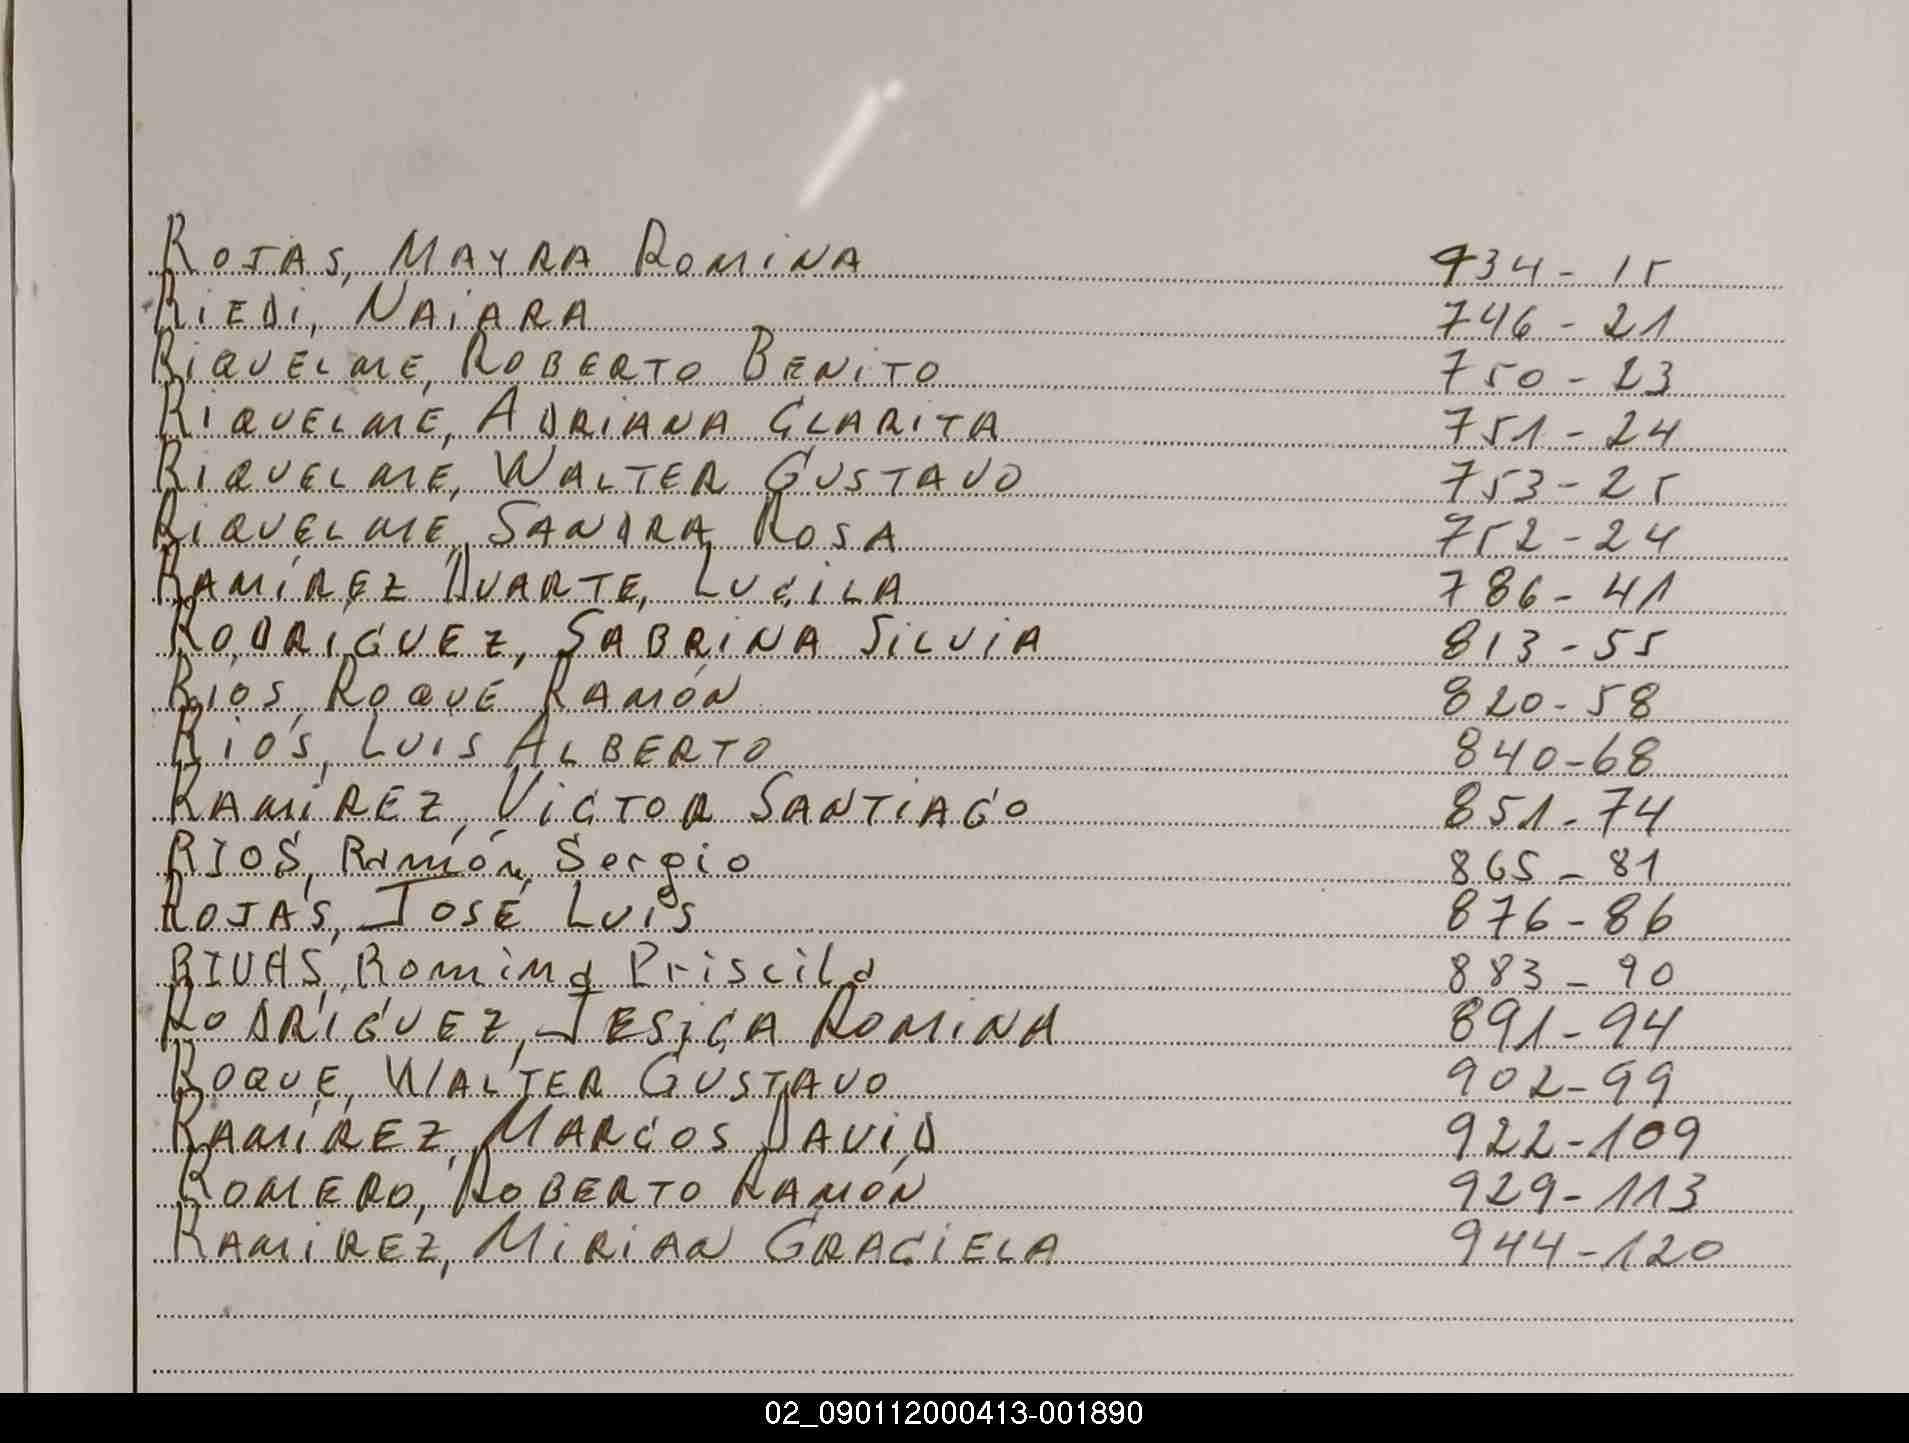 ROJAS, MAYRA ROMINA 734 - 15
RIEDI, NAIARA 746 - 21
RIQUELME, ROBERTO BENITO 750 - 23
RIQUELME, ADRIANA CLARITA 751 - 24
RIQUELME, WALTER GUSTAVO 753 - 25
RIQUELME, SANDRA ROSA 752 - 24
RAMÍREZ DUARTE, LUCILA 786 - 41
RODRIGUEZ, SABRINA SILVIA 813 - 55
RIOS, ROQUE RAMÓN 820 - 58
RIOS, LUIS ALBERTO 840 - 68
RAMÍREZ, VICTOR SANTIAGO 851 - 74
RIOS, Ramón Sergio 865 - 81
ROJAS, JOSÉ LUIS 876 - 86
RIVAS, Romina Priscila 883 - 90
RODRÍGUEZ, JESICA ROMINA 891 - 94
ROQUE, WALTER GUSTAVO 902 - 99
RAMÍREZ, MARCOS DAVID 922 - 109
ROMERO, ROBERTO RAMÓN 929 - 113
RAMIREZ, MIRIAN GRACIELA 944 - 120
02_090112000413-001890